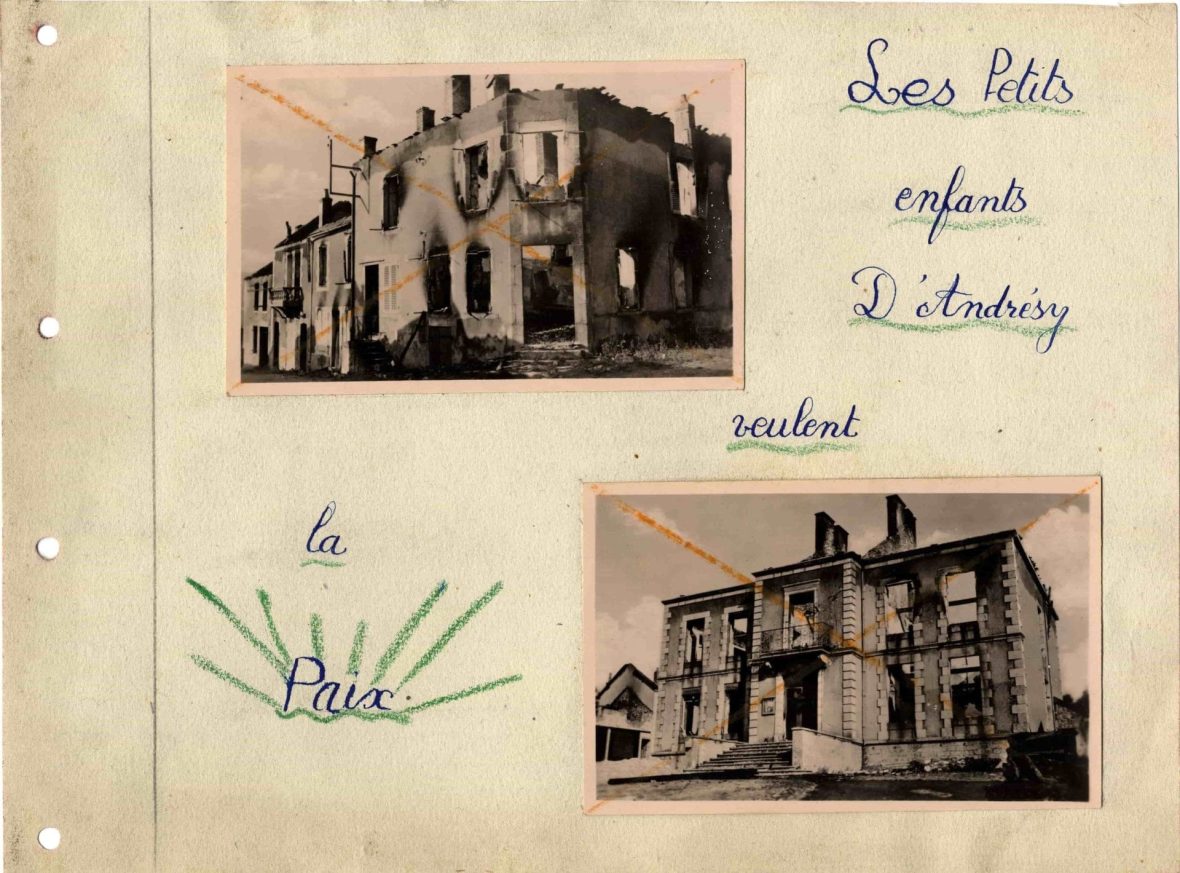 Les Petits
enfants
D'Andrésy
veulent
la
Paix.